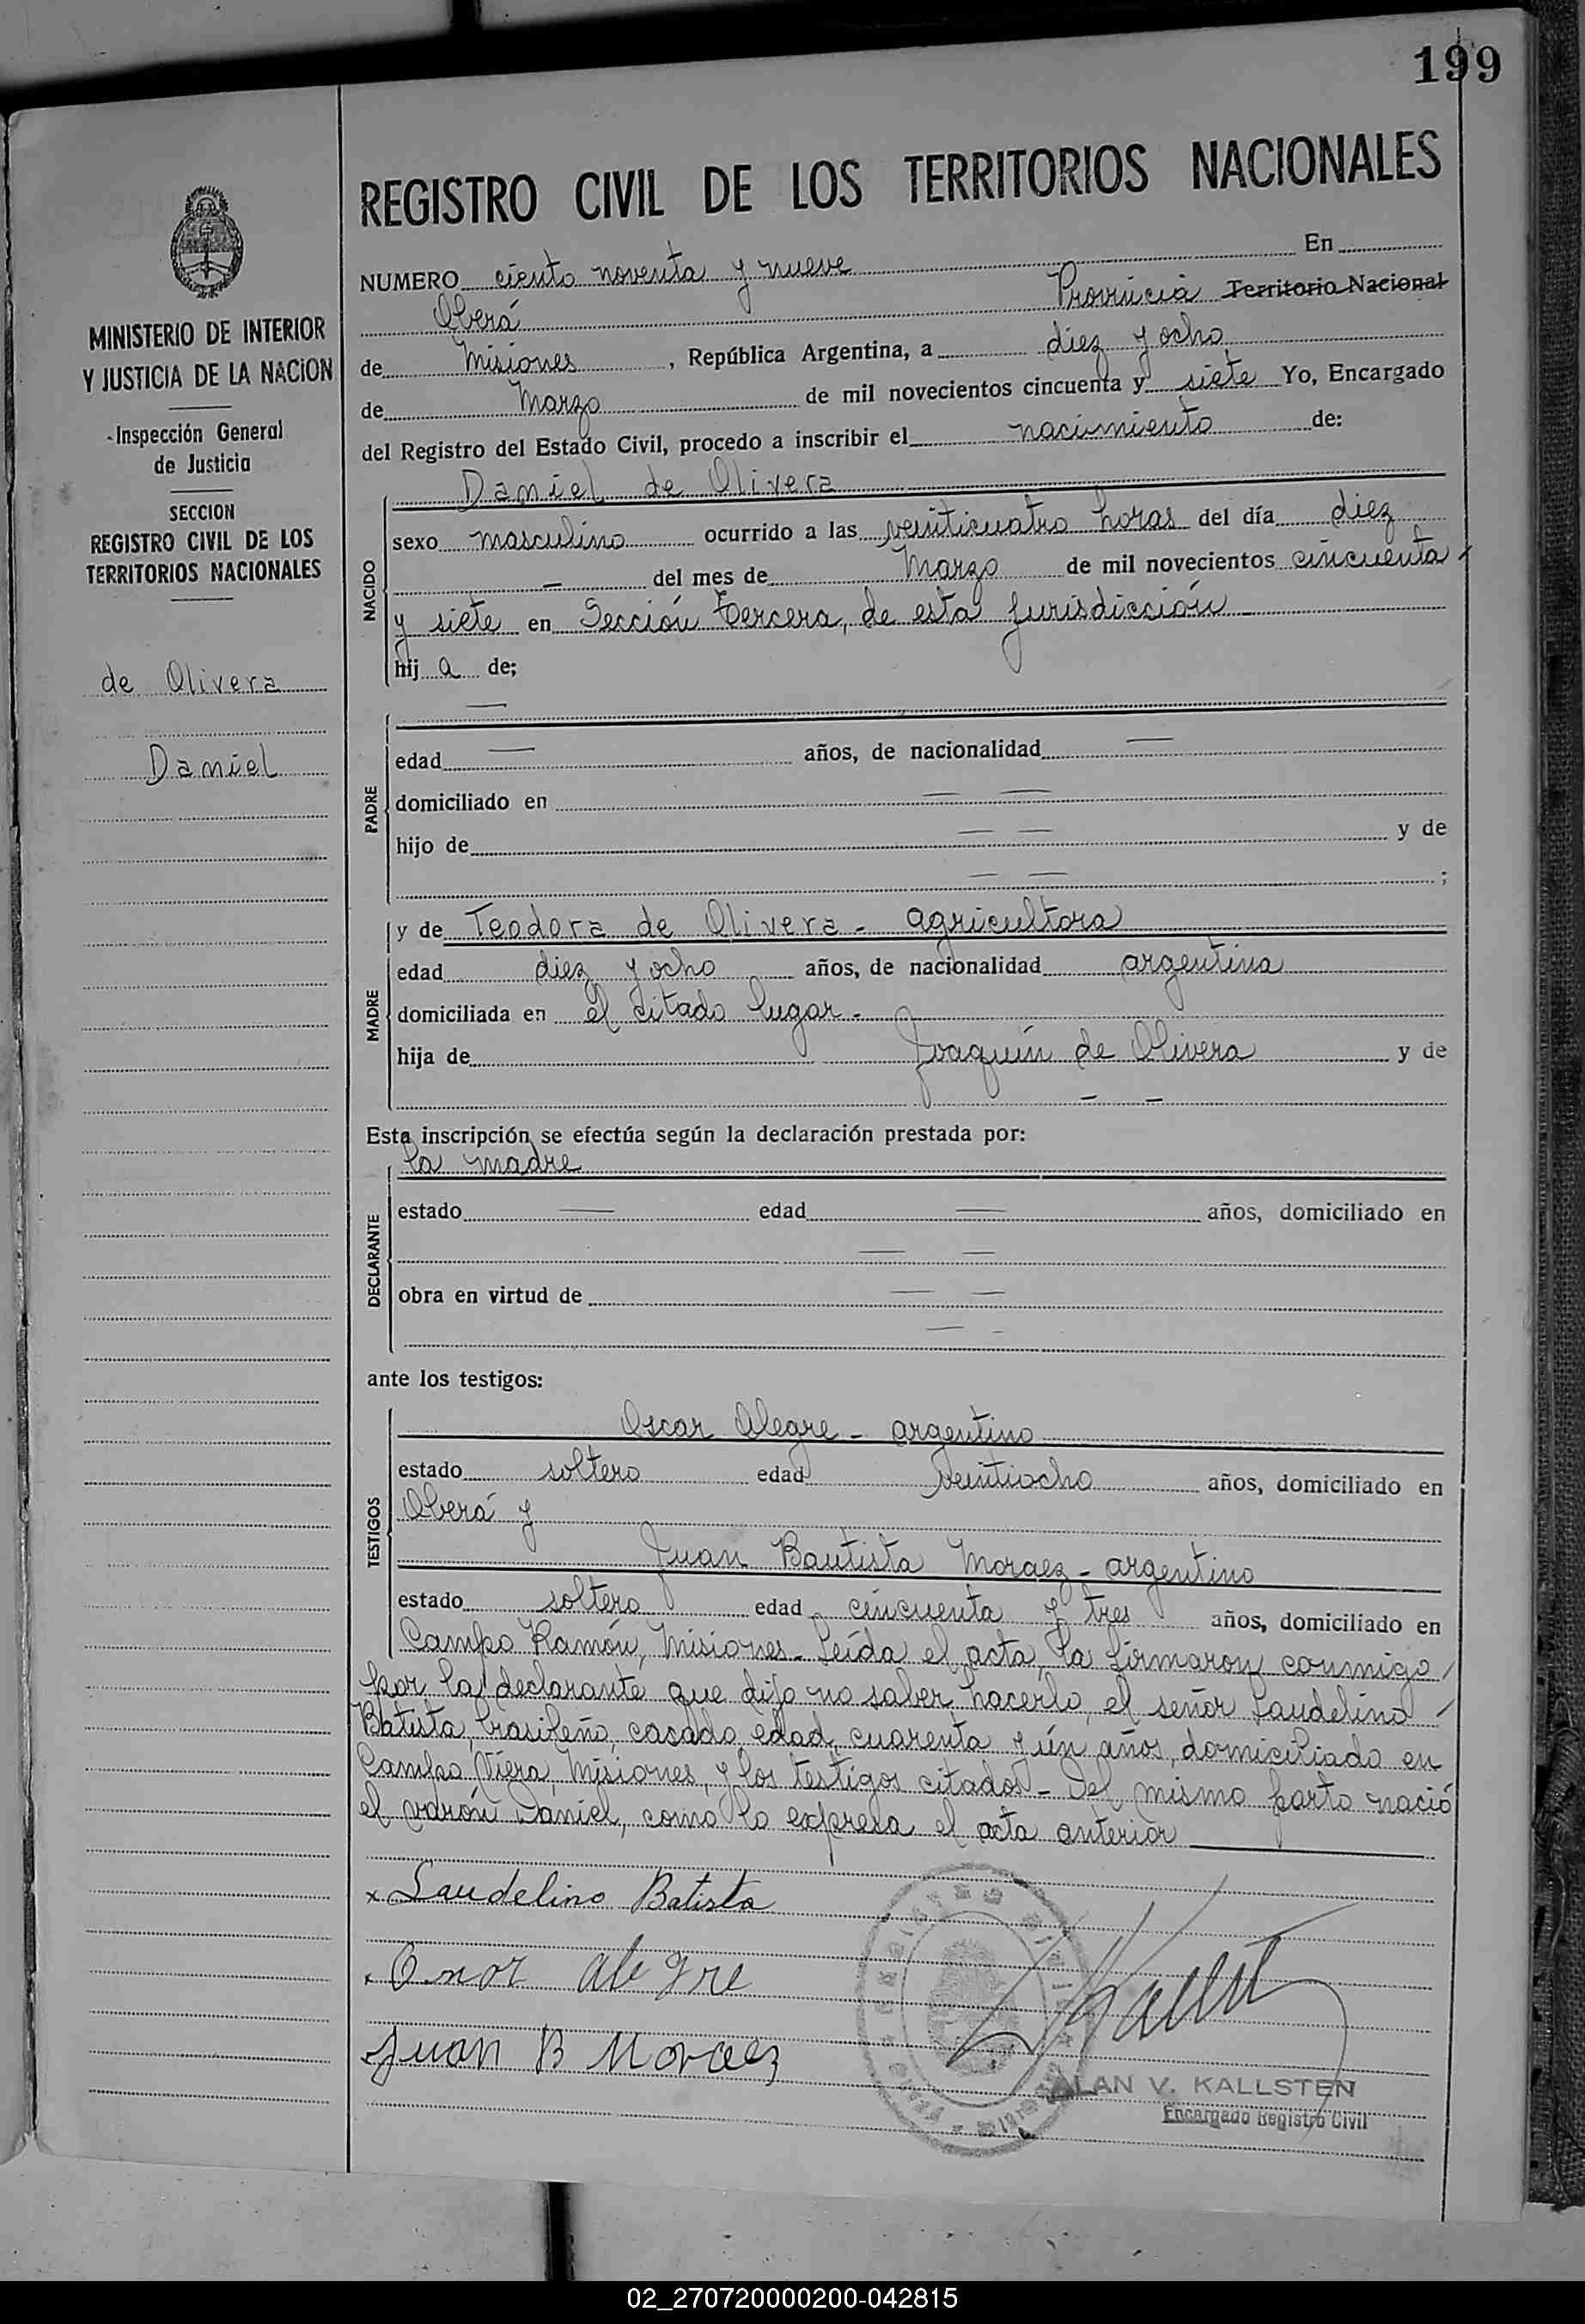 199
REGISTRO CIVIL DE LOS TERRITORIOS NACIONALES
MINISTERIO DE INTERIOR
Y JUSTICIA DE LA NACION
Inspección General
de Justicia
SECCION
REGISTRO CIVIL DE LOS
TERRITORIOS NACIONALES
de Olivera
Daniel
NUMERO ciento noventa y nueve En
Oberá Provincia Territorio Nacional
de Misiones, República Argentina, a diez y ocho
de Marzo de mil novecientos cincuenta y siete Yo, Encargado
del Registro del Estado Civil, procedo a inscribir el nacimiento de:
NACIDO
Daniel de Olivera
sexo masculino ocurrido a las veinticuatro horas del día diez
— del mes de Marzo de mil novecientos cincuenta
y siete en Sección tercera, de esta jurisdicción
hij a de;
PADRE
—
edad — años, de nacionalidad —
domiciliado en — —
hijo de — — y de
— — ;
MADRE
y de Teodora de Olivera - agricultora
edad diez y ocho años, de nacionalidad argentina
domiciliada en el citado lugar -
hija de Joaquín de Olivera y de
— —
Esta inscripción se efectúa según la declaración prestada por:
DECLARANTE
la madre
estado — edad — años, domiciliado en
— —
obra en virtud de — —
— -
ante los testigos:
TESTIGOS
Oscar Alegre - argentino
estado soltero edad veintiocho años, domiciliado en
Oberá y
Juan Bautista Moraez - argentino
estado soltero edad cincuenta y tres años, domiciliado en
Campo Ramón, Misiones - Leída el acta, la firmaron conmigo /
por la declarante que dijo no saber hacerlo, el señor Laudelino /
Batista, brasileño, casado, edad, cuarenta y ún años, domiciliado en
Campo Viera, Misiones, y los testigos citados - Del mismo parto nació
el varón Daniel, como lo expresa el acta anterior
x Laudelino Batista
x Alegre
Juan B Moraez
ALAN V. KALLSTEN
Encargado Registro Civil
02_270720000200-042815